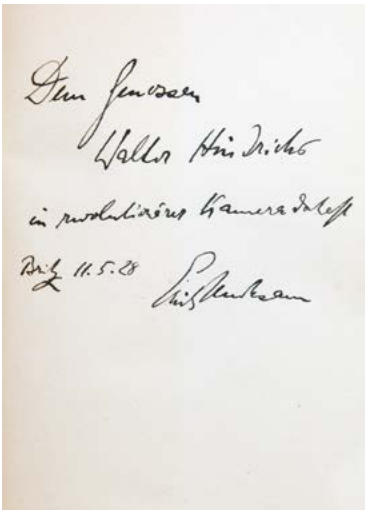 Dem Genossen
Walter Hindrichs
in revolutionärer Kameradschaft
Britz 11.5.28
Erich Mühsam